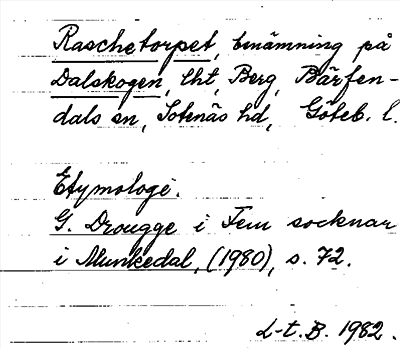 Raschetorpet, benämning på
Dalskogen, lht, Berg, Bärfen-
dals sn, Sotenäs hd, Göteb. l.
Etymologi.
G. Drougge i Fem socknar
i Munkedal, (1980), s. 72.
L-t. B. 1982.